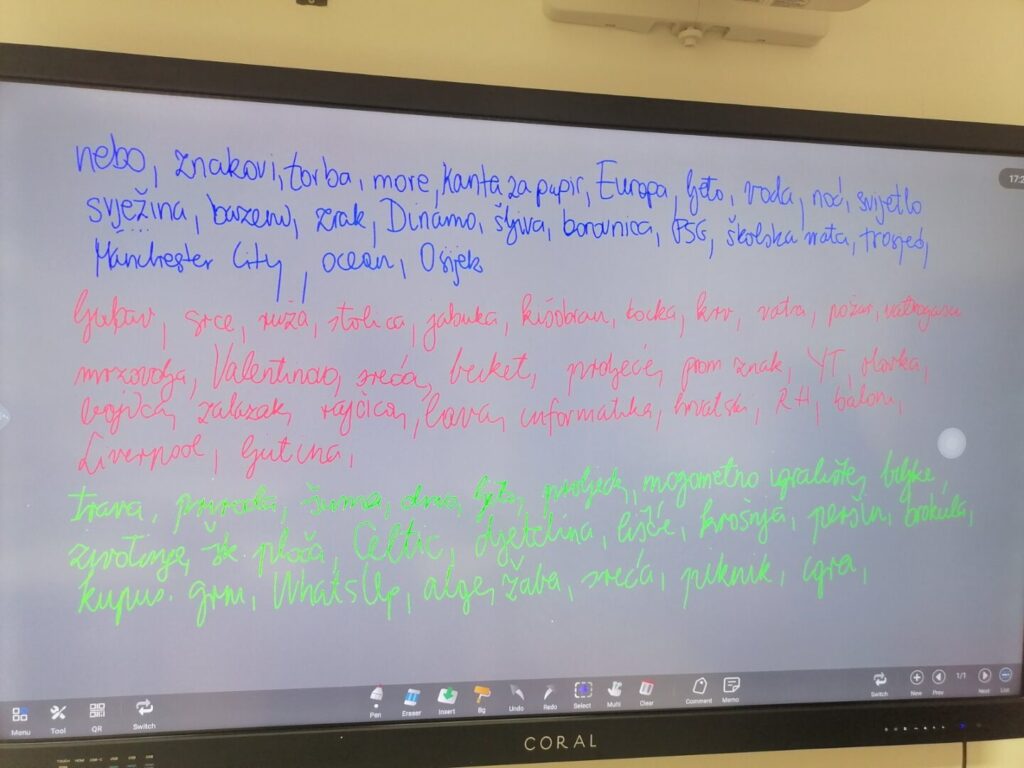 17:2
nebo, znakovi, torba, more, kanta za papir, Europa, ljeto, voda, noć, svijetlo
svježina, bazeni, zrak, Dinamo, šljiva, borovnica, PSG, školska vrata, trosjed,
Manchester City, ocean, Osijek
ljubav, srce, ruža, stolica, jabuka, kišobran, kocka, krv, vatra, požar, vatrogasci
mrzovolja, Valentinovo, sreća, buket, proljeće, prom znak, YT, olovka,
zalazak, rajčica, lava, informatika, hrvatski, RH, baloni,
Liverpool, ljutina,
trava, priroda, šuma, drvo, ljeto, proljeće, nogometno igralište, biljke,
životinje, plaža, Celtic, djetelina, lišće, krošnja, peršin, brokula,
kupus. grm, WhatsUp, alge, žaba, sreća, piknik, igra,
Menu Tool QR Switch Pen Eraser Insert Bg Undo Redo Select Multi Clear Comment Memo Switch New Prev 1/1 Next List
CORAL